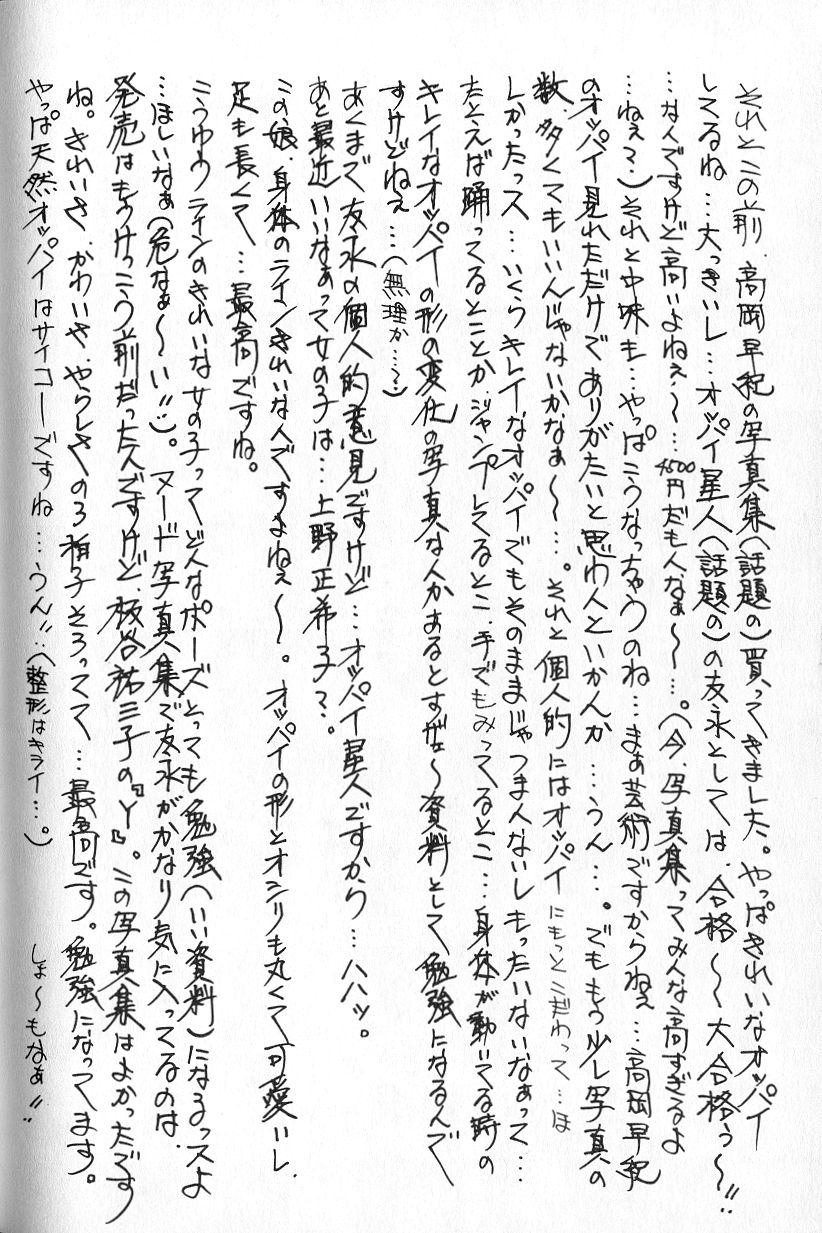 それとこの前、高岡早紀の写真集（話題の）買ってきました。やっぱきれいなオッパイ
してるね…大っきいし…オッパイ星人（話題の）の友永としては、合格〜〜大合格ぅ〜!!
…なんですけど高いよねぇ〜…4500円だもんなぁ〜〜…。（今、写真集ってみんな高すぎるよ
…ねぇ？）それと中味も…やっぱこうなっちゃうのね…まぁ芸術ですからねぇ…高岡早紀
のオッパイ見れただけでありがたいと思わんといかんか…うん…。でももう少し写真の
数、多くてもいいんじゃないかなぁ〜〜…。それと個人的にはオッパイにもっとこだわって…ほ
しかったっス…いくらキレイなオッパイでもそのままじゃつまんないしもったいないなぁって…
たとえば踊ってるとことか、ジャンプしてるとこ、手でもみってるとこ…身体が動いてる時の
キレイなオッパイの形の変化の写真なんかあるとすげェ〜資料として勉強になるんで
すけどねぇ…（無理か…？）
あくまで友永の個人的意見ですけど…オッパイ星人ですから…ハハッ。
あと最近いいなぁって女の子は…上野正希子？。
この娘、身体のラインきれいなんですよねぇ〜。オッパイの形とオシリも丸くて可愛いし、
足も長くて…最高ですね。
こうゆうラインのきれいな女の子ってどんなポーズとっても勉強（いい資料）になるっスよ
…ほしいなぁ（危なぁ〜い!!）。ヌード写真集で友永がかなり気に入ってるのは、
発売はもうけっこう前だったんですけど、板谷祐三子の『Y』。この写真集はよかったです
ね。きれいさ、かわいさ、やらしさの3拍子そろってて…最高です。勉強になってます。
やっぱ天然オッパイはサイコーですね…うん!!（整形はキライ…。）
しょ〜もなぁ!!